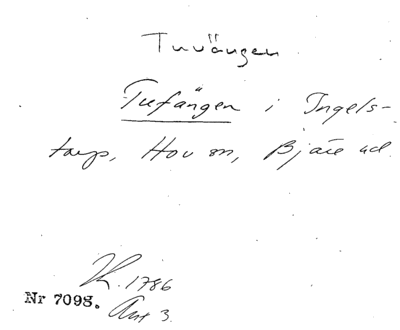 Tuvängen
Tufängen i Ingels-
torp, Hov sn, Bjäre hd.
K. 1786
Nr 7098. Akt 3.